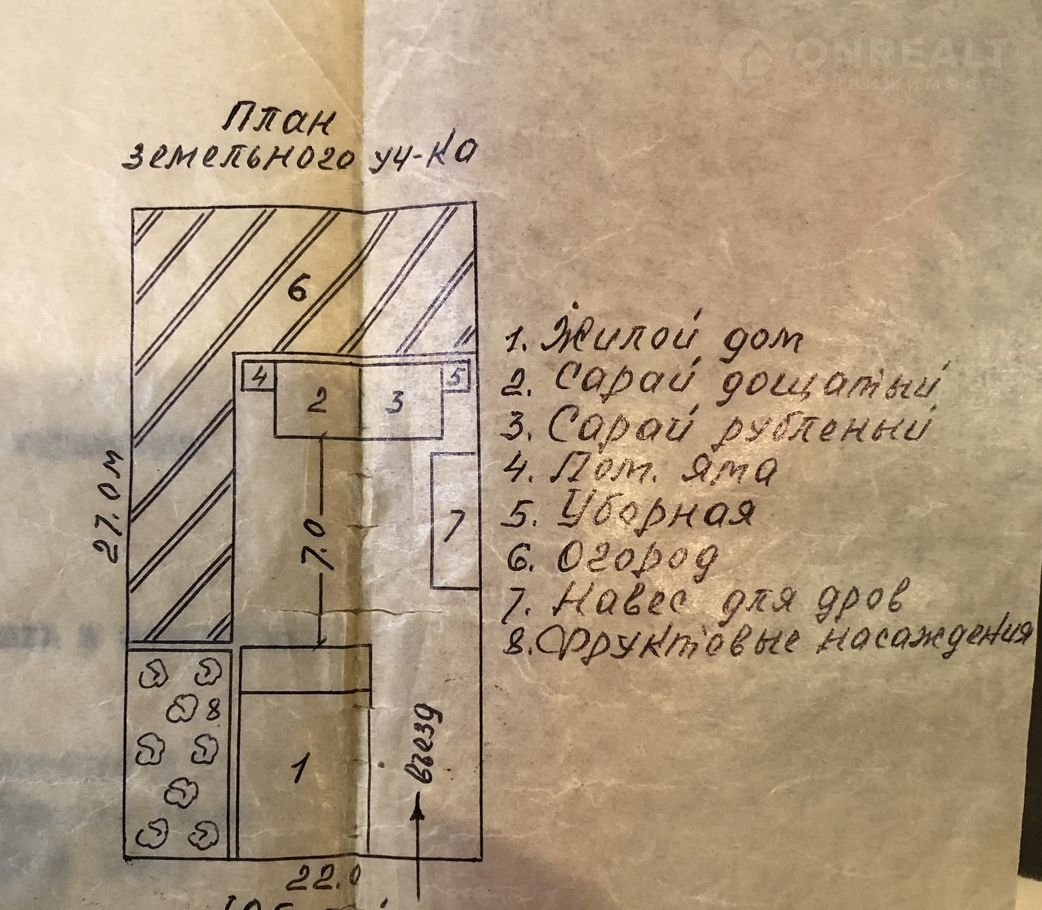 ONREALT
НЕДВИЖИМОСТЬ
План
земельного уч-ка
6
4
2
3
5
27.0 м
7.0
7
8
1
въезд
22.0
1. Жилой дом
2. Сарай дощатый
3. Сарай рубленый
4. Пом. яма
5. Уборная
6. Огород
7. Навес для дров
8. Фруктовые насаждения